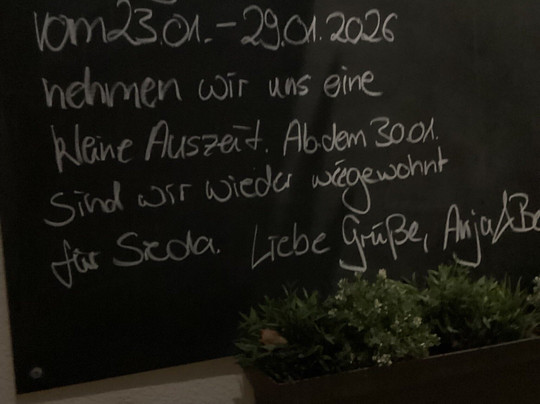 vom 23.01. – 29.01.2026
nehmen wir uns eine
kleine Auszeit. Ab dem 30.01.
sind wir wieder wiegewohnt
für Sie da. Liebe Grüße, Anja & Be